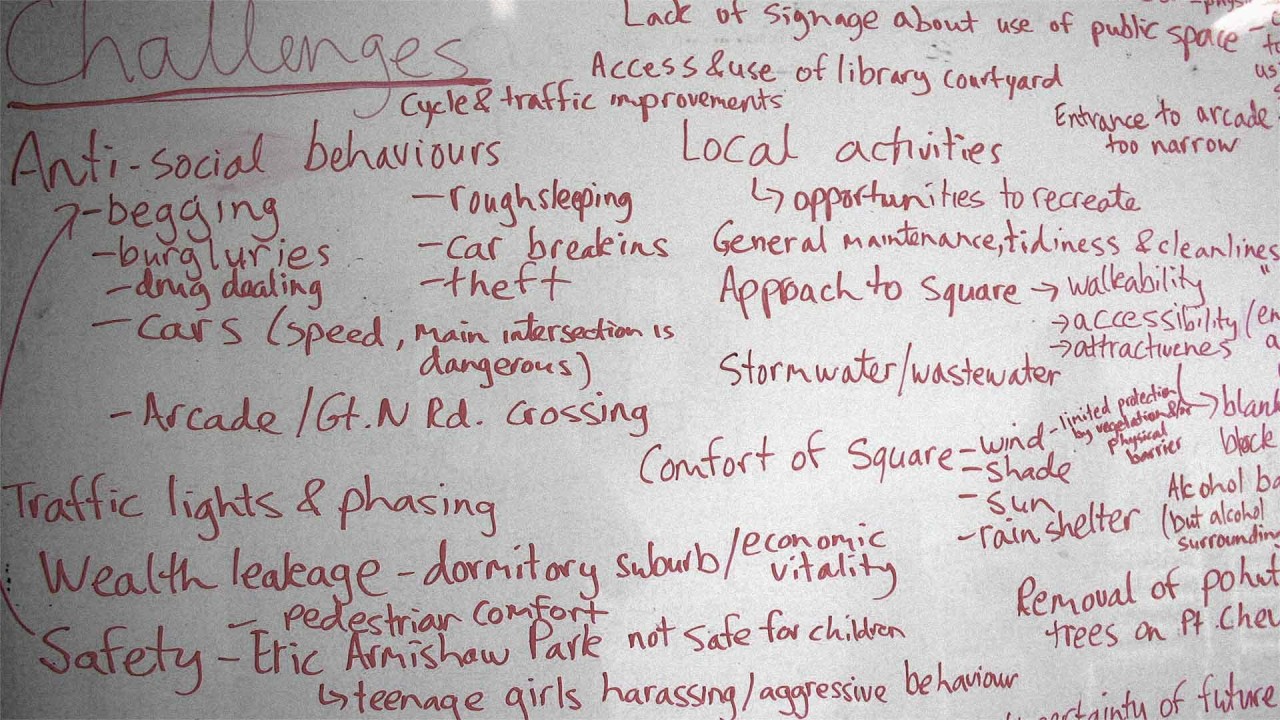 Challenges
Lack of signage about use of public space
Access & use of library courtyard
Cycle & traffic improvements
Entrance to arcade
too narrow
Anti-social behaviours
-begging
-burgluries
-drug dealing
-cars (speed, main intersection is
dangerous)
-Arcade/Gt. N Rd. crossing
-roughsleeping
-car breakins
-theft
Local activities
↳ opportunities to recreate
General maintenance, tidiness & cleanlines
Approach to Square → walkability
→ accessibility
→ attractivenes
Stormwater/wastewater
Comfort of Square - wind - limited protection
by vegetation &/or
physical
barrier
- shade
- sun
- rain shelter
Alcohol
(but alcohol
surrounding
Traffic lights & phasing
Wealth leakage - dormitory suburb/economic
vitality
- pedestrian comfort
Safety - Eric Armishaw Park not safe for children
↳ teenage girls harassing/aggressive behaviour
Removal of
trees on Pt. Chev
of future